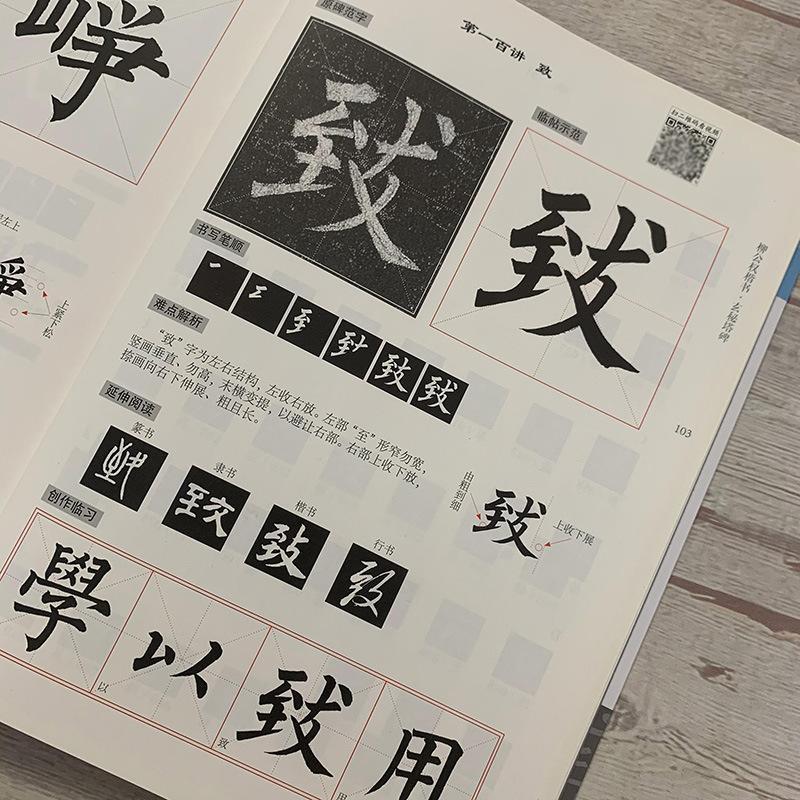 第一百讲 致
原碑范字
致
临帖示范
扫二维码看视频
致
书写笔顺
难点解析
“致”字为左右结构，左收右放。左部“至”形窄勿宽，
竖画垂直、勿高，末横变提，以避让右部。右部上收下放，
捺画向右下伸展、粗且长。
由粗到细
致
上收下展
延伸阅读
篆书
隶书
楷书
行书
致
致
致
致
创作临习
學以致用
以
致
用
柳公权楷书·玄秘塔碑
103
峥
上紧下松